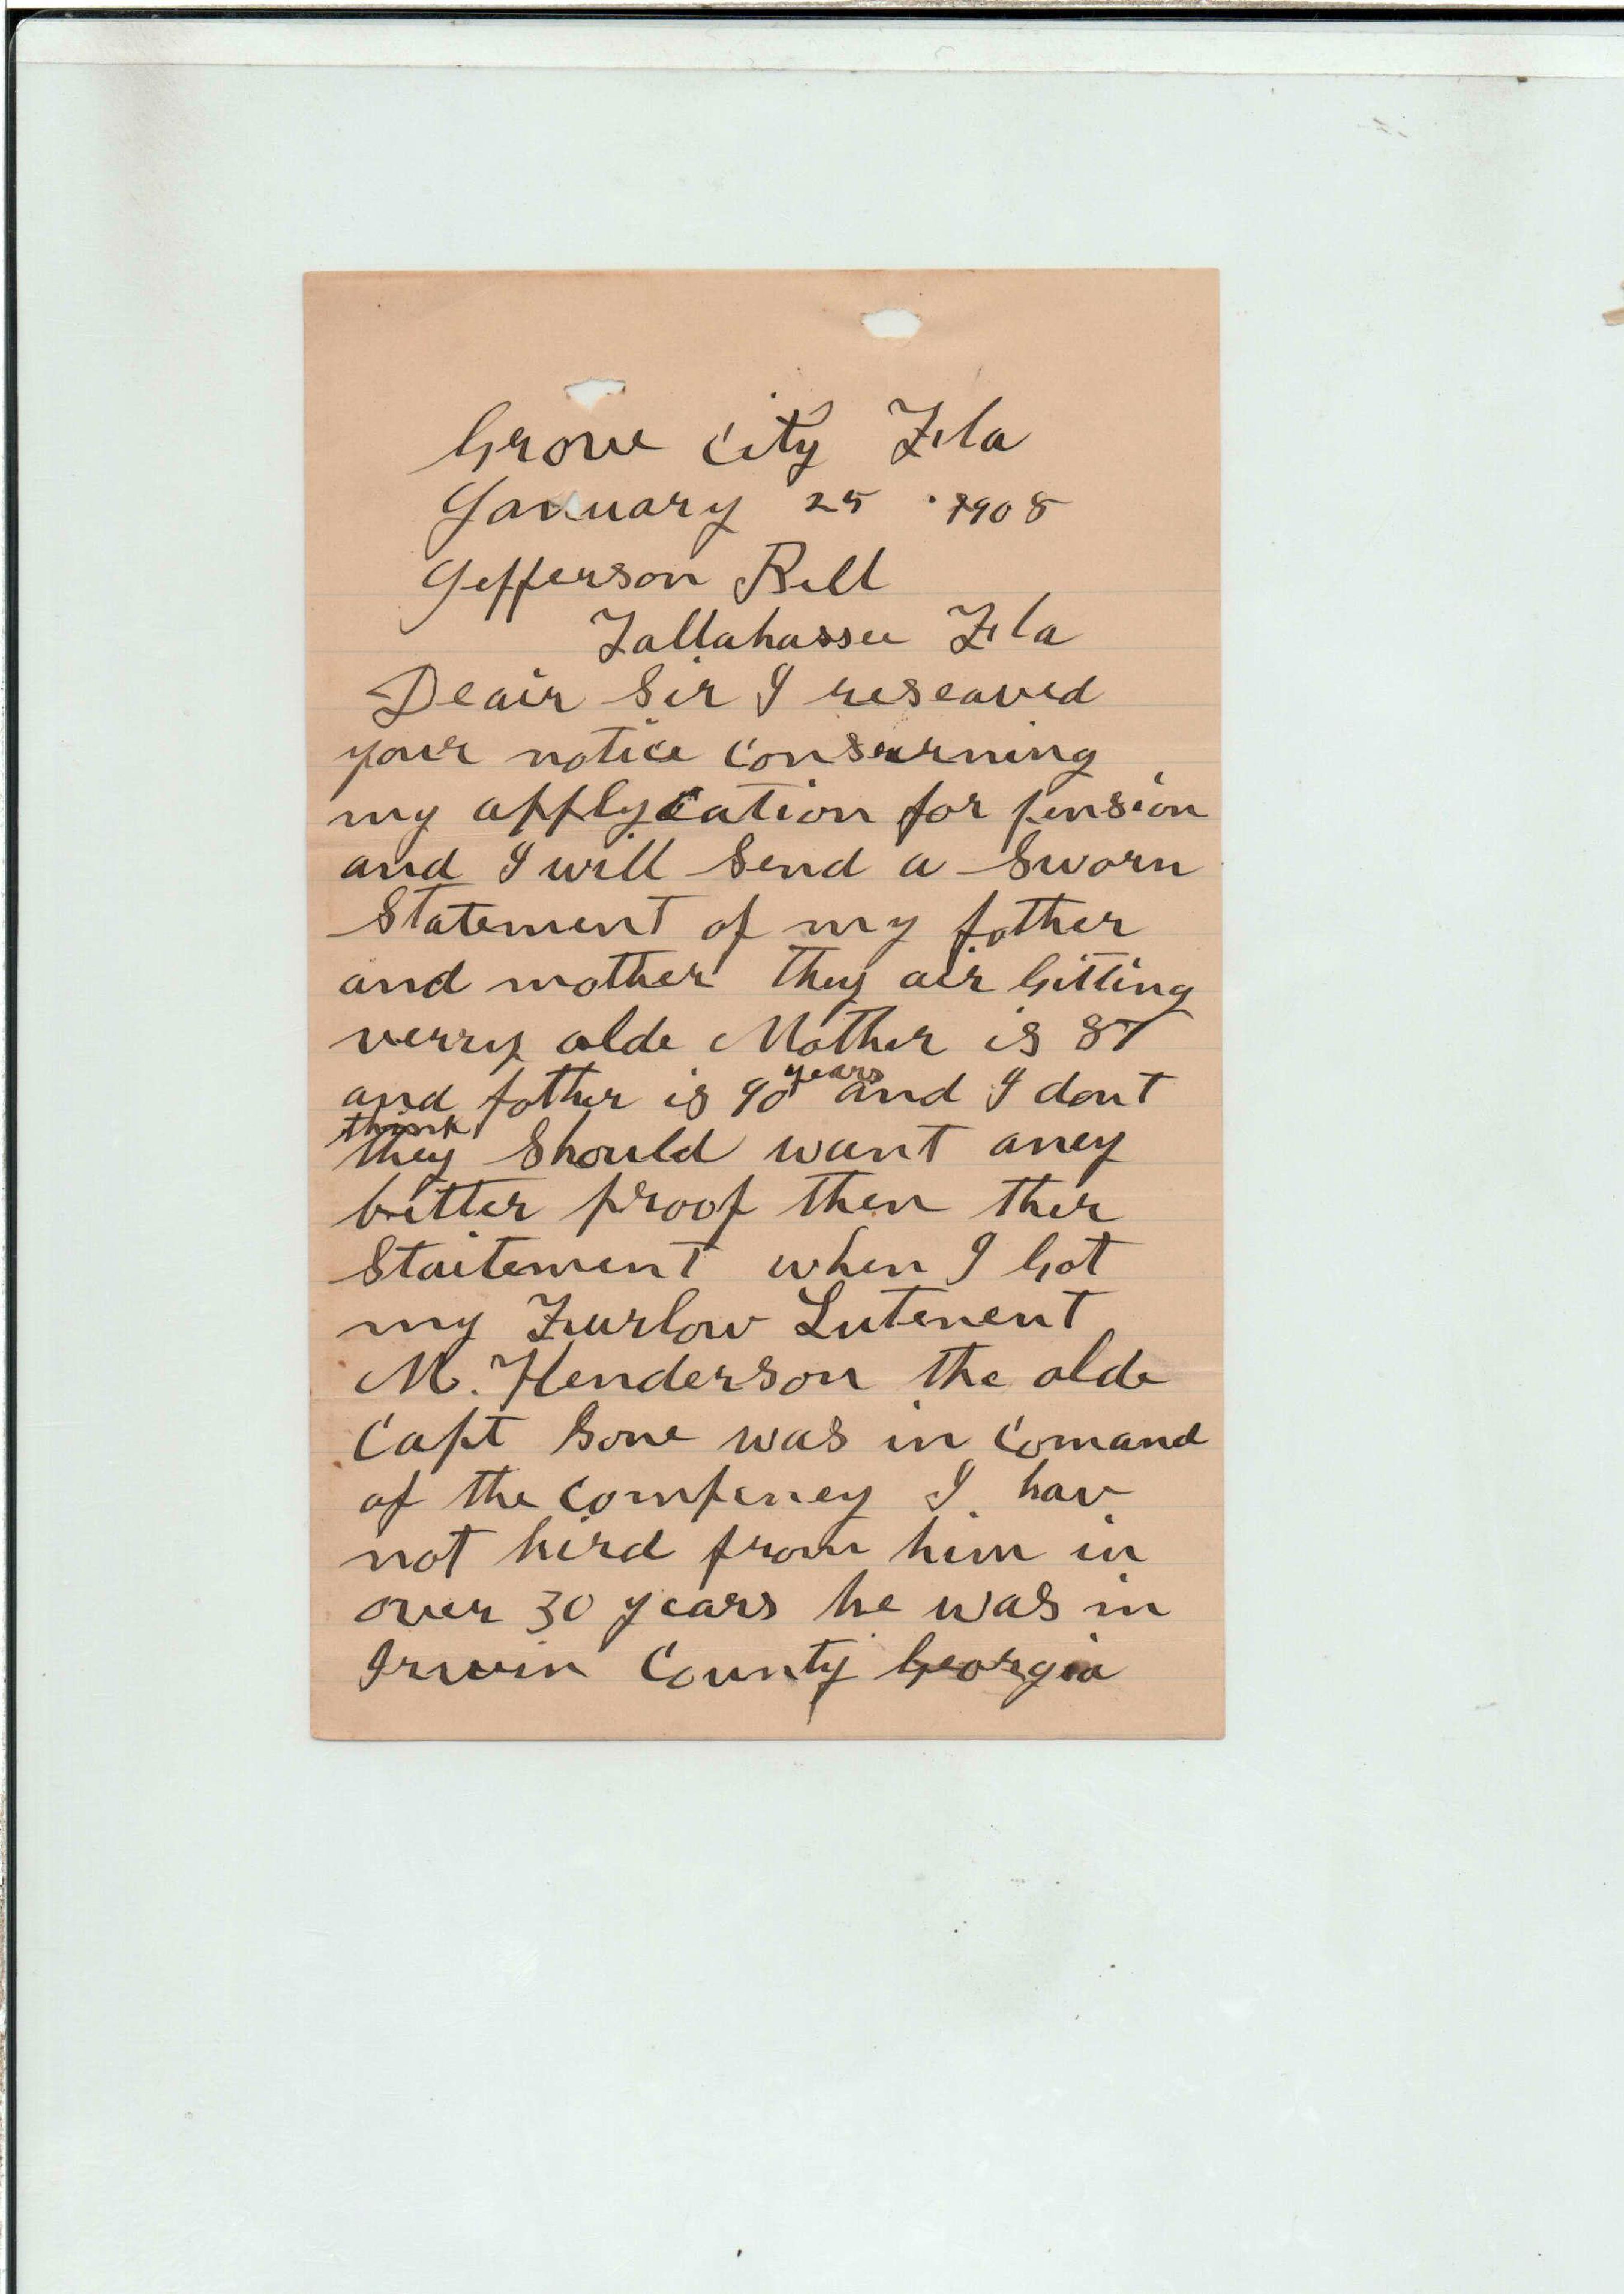 Grove City Fla
January 25 1908
Jefferson Bell
Tallahassee Fla
Deair Sir I reseaved
your notice conserning
my applycation for pension
and I will Send a Sworn
Statement of my father
and mother they air Gitting
verry olde Mother is 87
and father is 90 years and I dont
think they Should want aney
better proof then ther
Staitement when I Got
my Furlow Lutenent
M. Henderson the olde
Capt Sone was in Comand
of the Compeney I hav
not hird from him in
over 30 years he was in
Irwin County Georgia